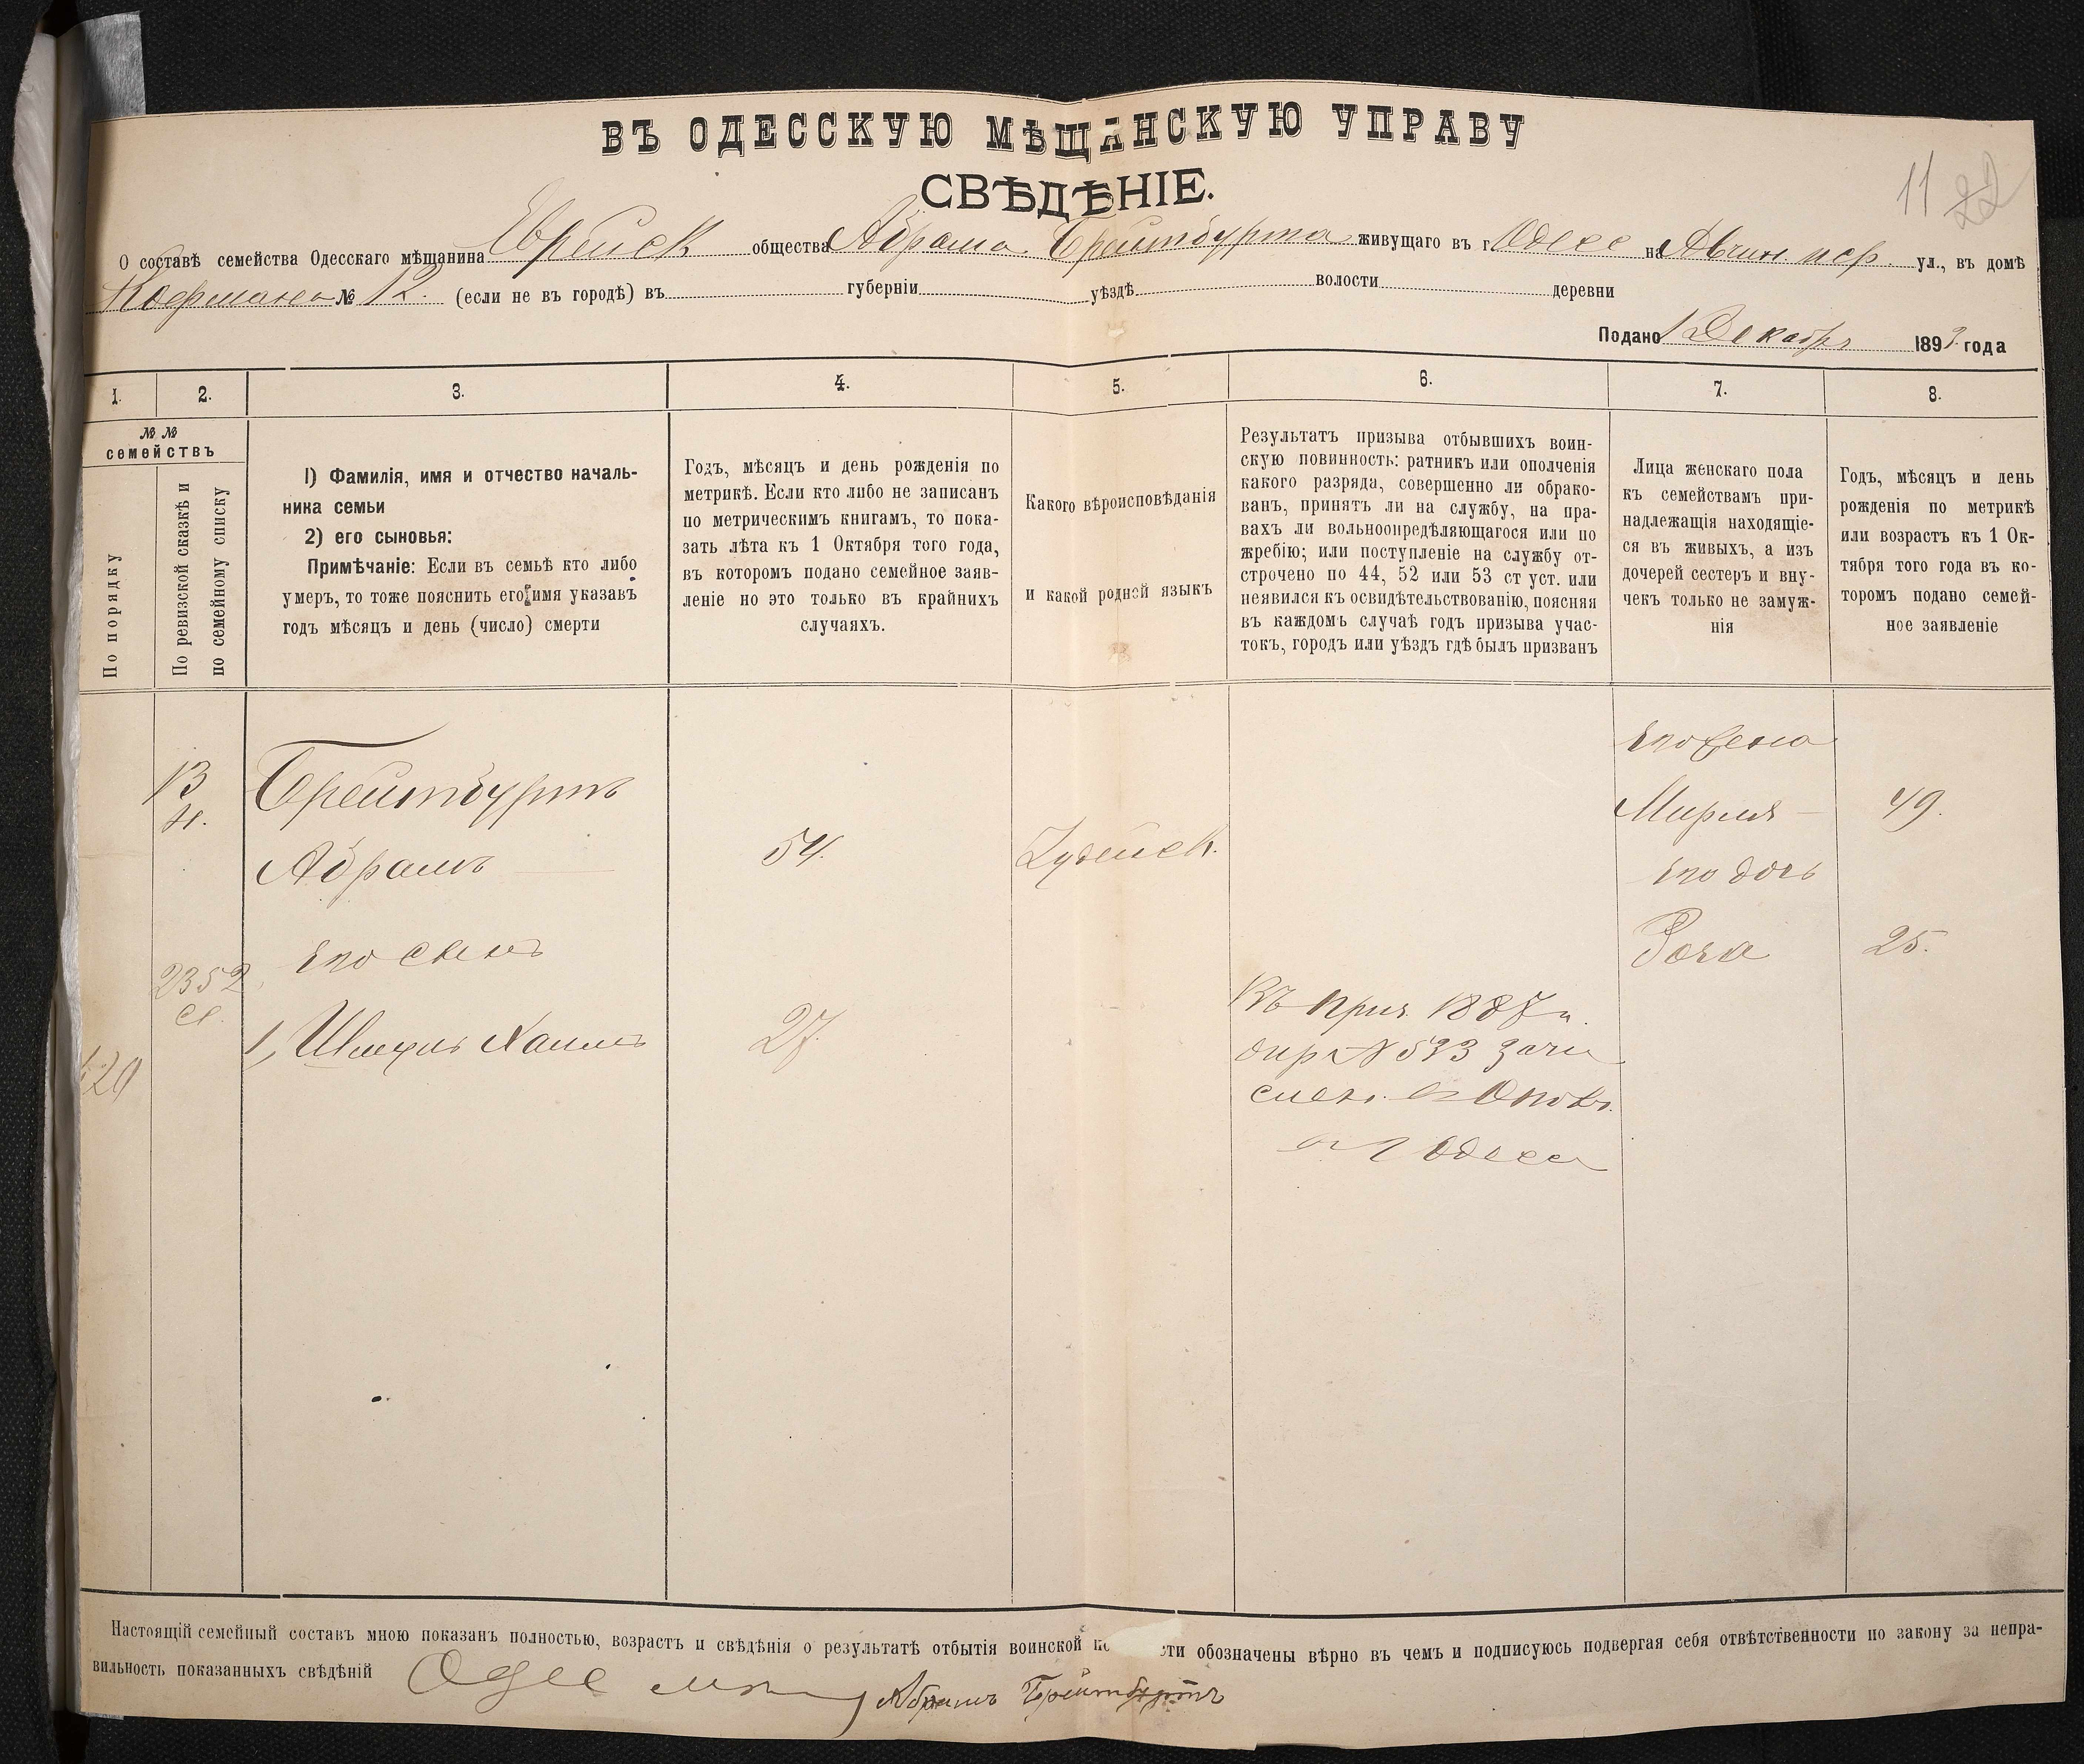 ВЪ ОДЕССКУЮ МѢЩАНСКУЮ УПРАВУ
СВѢДѢНІЕ.
11 22
О составѣ семейства Одесскаго мѣщанина Еврейск общества Абрама Брейтбурта живущаго въ г. Одессе на ул., въ домѣ
Кофмана № 12. (если не въ городѣ) въ губерніи уѣздѣ волости деревни
Подано 1 Декабря 1893 года
1. 2. 3. 4. 5. 6. 7. 8.
№ № семействъ
По порядку
По ревизской сказкѣ и
по семейному списку
1) Фамилія, имя и отчество началь-
ника семьи
2) его сыновья:
Примѣчаніе: Если въ семьѣ кто либо
умеръ, то тоже пояснить его имя указавъ
годъ мѣсяцъ и день (число) смерти
Годъ, мѣсяцъ и день рожденія по
метрикѣ. Если кто либо не записанъ
по метрическимъ книгамъ, то пока-
зать лѣта къ 1 Октября того года,
въ которомъ подано семейное заяв-
леніе но это только въ крайнихъ
случаяхъ.
Какого вѣроисповѣданія
и какой родной языкъ
Результатъ призыва отбывшихъ воин-
скую повинность: ратникъ или ополченія
какого разряда, совершенно ли обрако-
ванъ, принятъ ли на службу, на пра-
вахъ ли вольноопредѣляющагося или по
жребію; или поступленіе на службу от-
строчено по 44, 52 или 53 ст уст. или
неявился къ освидѣтельствованію, поясняя
въ каждомъ случаѣ годъ призыва учас-
токъ, городъ или уѣздъ гдѣ былъ призванъ
Лица женскаго пола
къ семействамъ при-
надлежащія находящіе-
ся въ живыхъ, а изъ
дочерей сестеръ и вну-
чекъ только не замуж-
нія
Годъ, мѣсяцъ и день
рожденія по метрикѣ
или возрастъ къ 1 Ок-
тября того года въ ко-
торомъ подано семей-
ное заявленіе
его жена
Брейтбуртъ
Мирля 49.
Абрамъ 54. Іудейск.
его дочь
его сынъ
Роза 25.
2352
1, Шмуль Хаимъ 27.
Въ приз. 1887 г.
№ 533 зачи
слен. в Ополч.
в г Одессе
Настоящій семейный составъ мною показанъ полностью, возрастъ и свѣдѣнія о результатѣ отбытія воинской по сти обозначены вѣрно въ чемъ и подписуюсь подвергая себя отвѣтственности по закону за непра-
вильность показанныхъ свѣдѣній Одес Абрамъ Брейтбуртъ